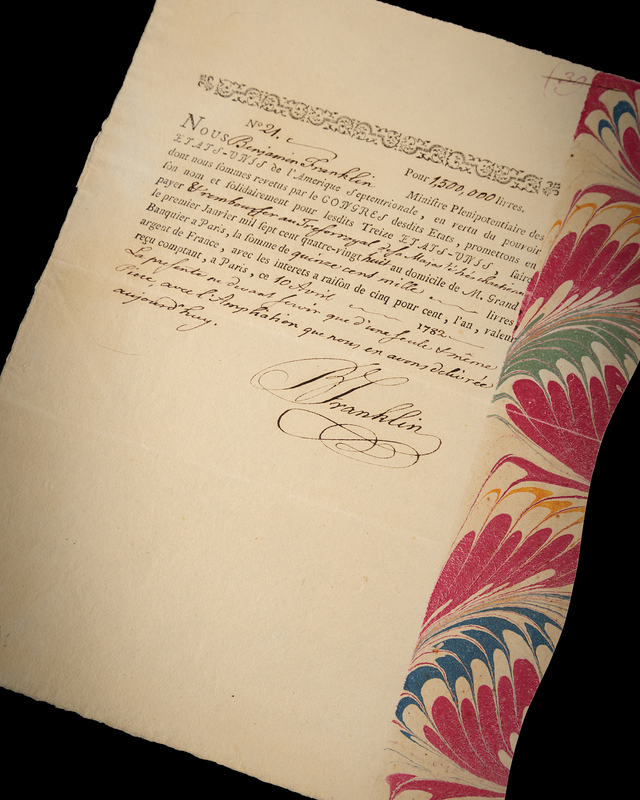 (39
N° 21. Pour 1,500,000 livres.
NOUS Benjamin Franklin Ministre Plenipotentiaire des
ETATS-UNIS de l'Amérique Septentrionale, en vertu du pouvoir
dont nous sommes revetus par le CONGRES desdits Etats, promettons en
son nom et solidairement pour lesdits Treize ETATS-UNIS, faire
payer au Tresor royal de sa Majesté très chretienne
le premier Janvier mil sept cent quatre-vingt huit au domicile de M. Grand
Banquier a Paris, la somme de quinze cent mille livres
argent de France, avec les interets a raison de cinq pour cent, l'an, valeur
reçu comptant, a Paris, ce 10 Avril 1782.
La presente ne devant servir que d'une seule et même
Piece, avec l'Ampliation que nous en avons delivrée
aujourd'huy.
B Franklin